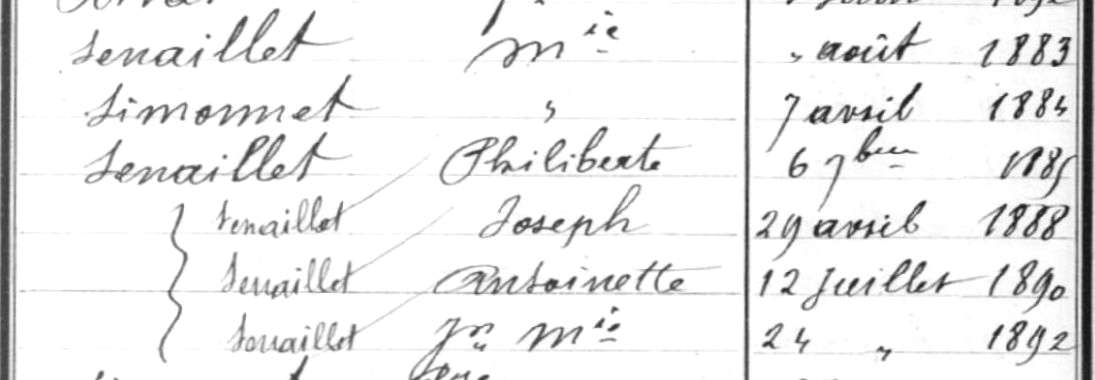 Senaillet Mie " août 1883
Simonnet " 7 avril 1884
Senaillet Philiberte 6 7bre 1885
Senaillet Joseph 29 avril 1888
Senaillet Antoinette 12 Juillet 1890
Senaillet Jn Mie 24 " 1892